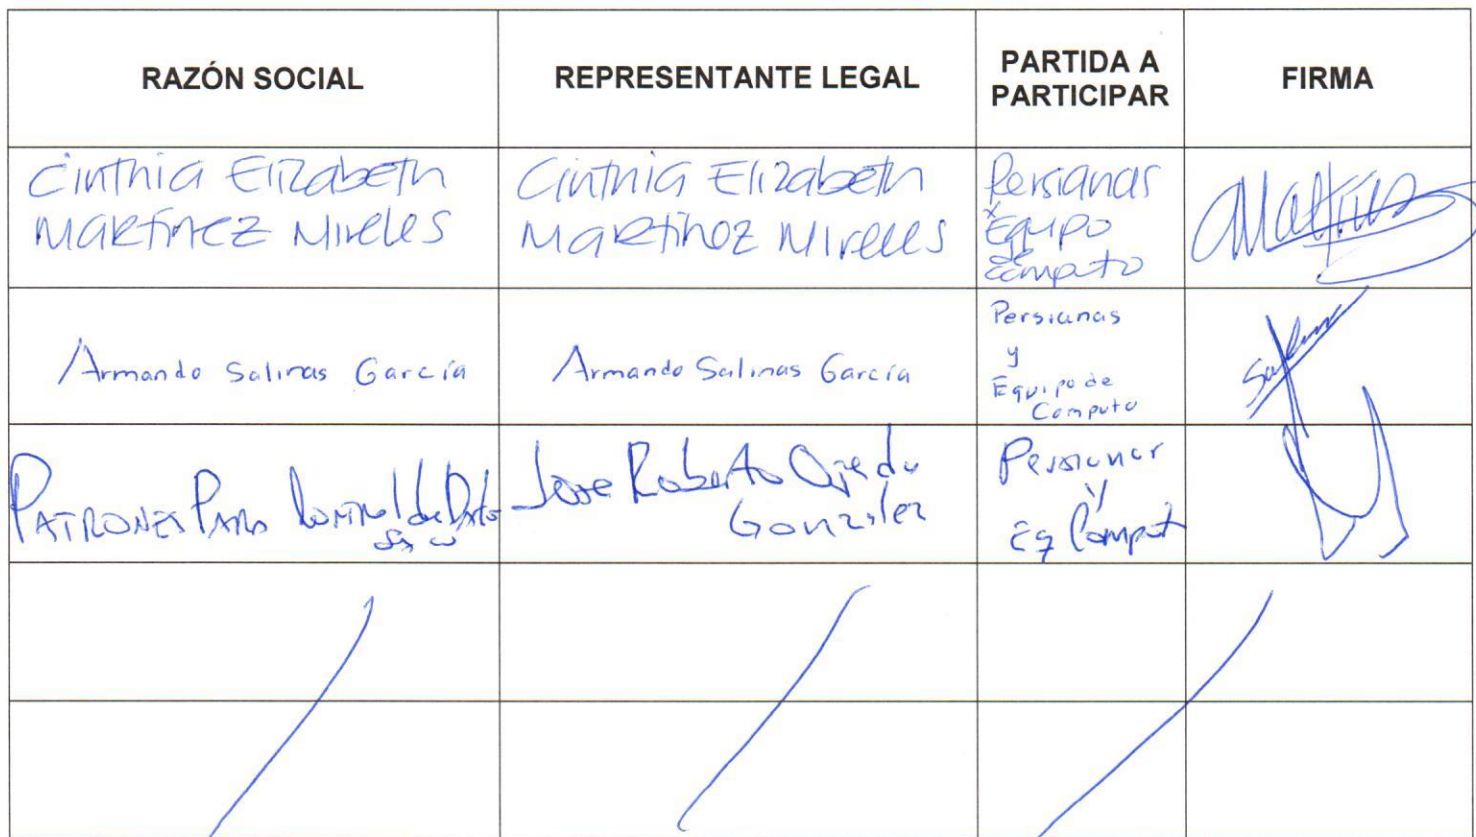 RAZÓN SOCIAL
REPRESENTANTE LEGAL
PARTIDA A
PARTICIPAR
FIRMA
Cinthia Elizabeth
Martinez Mireles
Cinthia Elizabeth
Martinez Mireles
Persianas
y
Equipo
de
Computo
Armando Salinas García
Armando Salinas García
Persianas
y
Equipo de
Computo
PATRONES PARA Control de
Jose Roberto Ojeda
Gonzalez
Persianas
y
Eq Comput